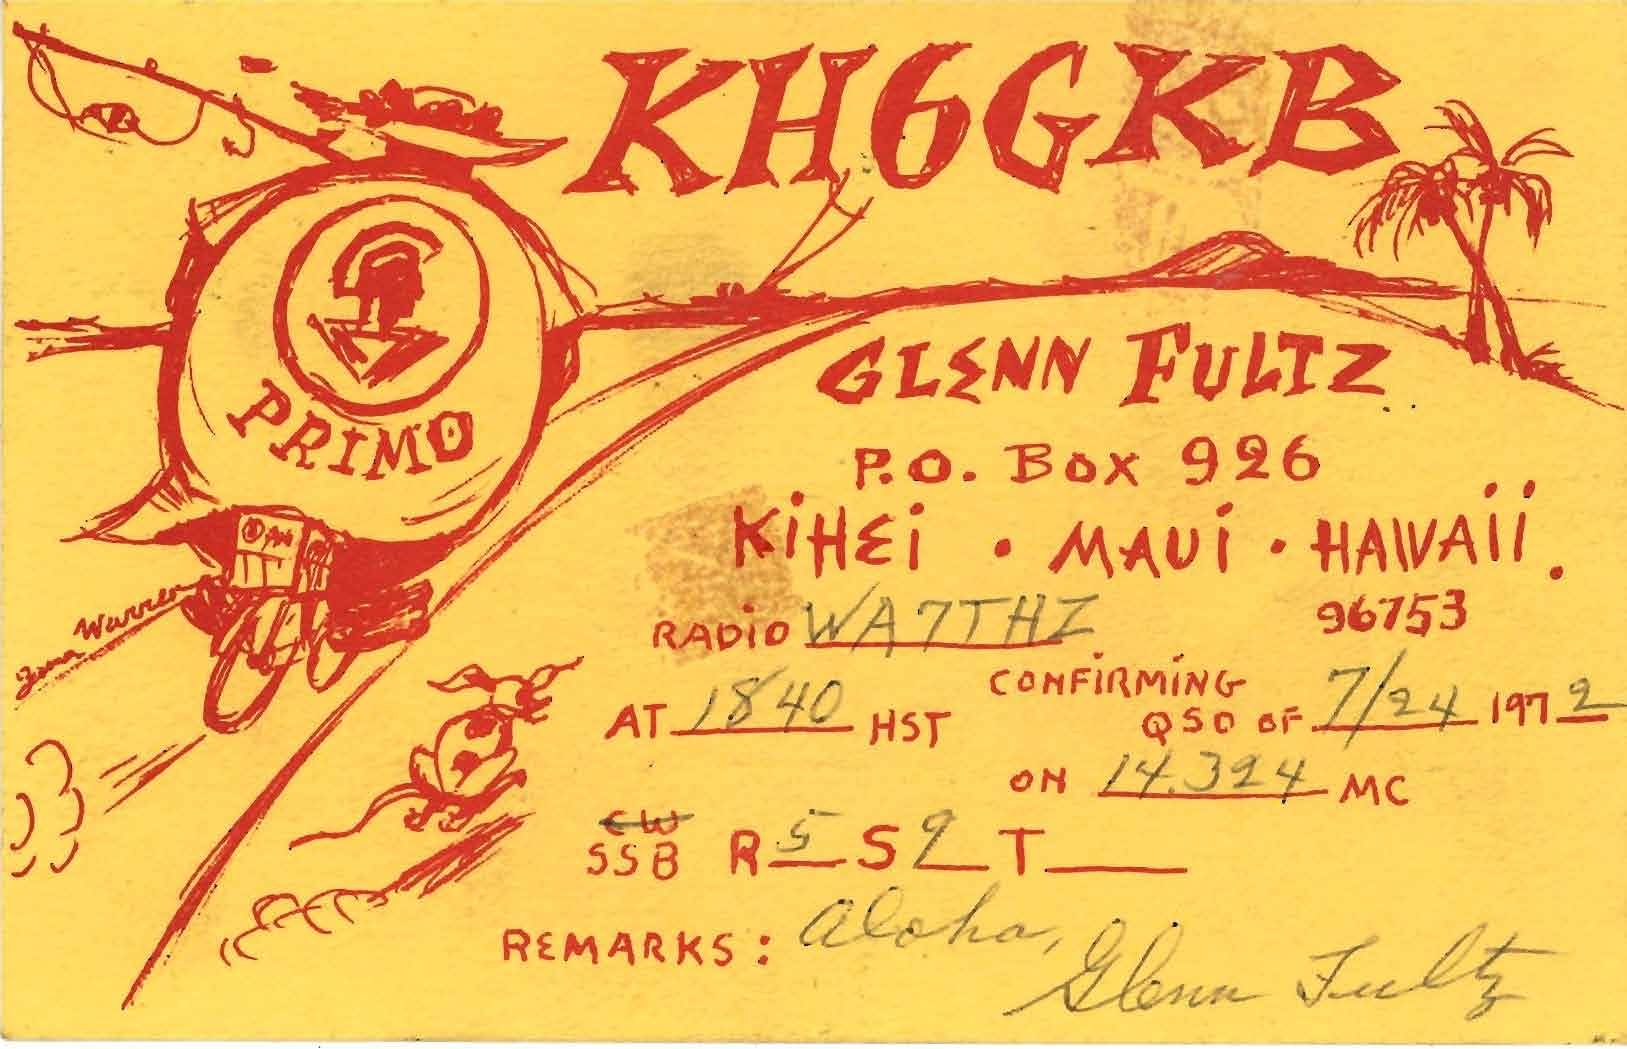 KH6GKB
PRIMO
GLENN FULTZ
P.O. BOX 926
KiHEi • MAUi • HAWAii.
96753
RADiO WA7THZ
CONFiRMiNG
AT 1840 HST
QSO OF 7/24 1972
ON 14.324 MC
CW
SSB R 5 S 9 T
REMARKS: Aloha,
Glenn Fultz
Warren